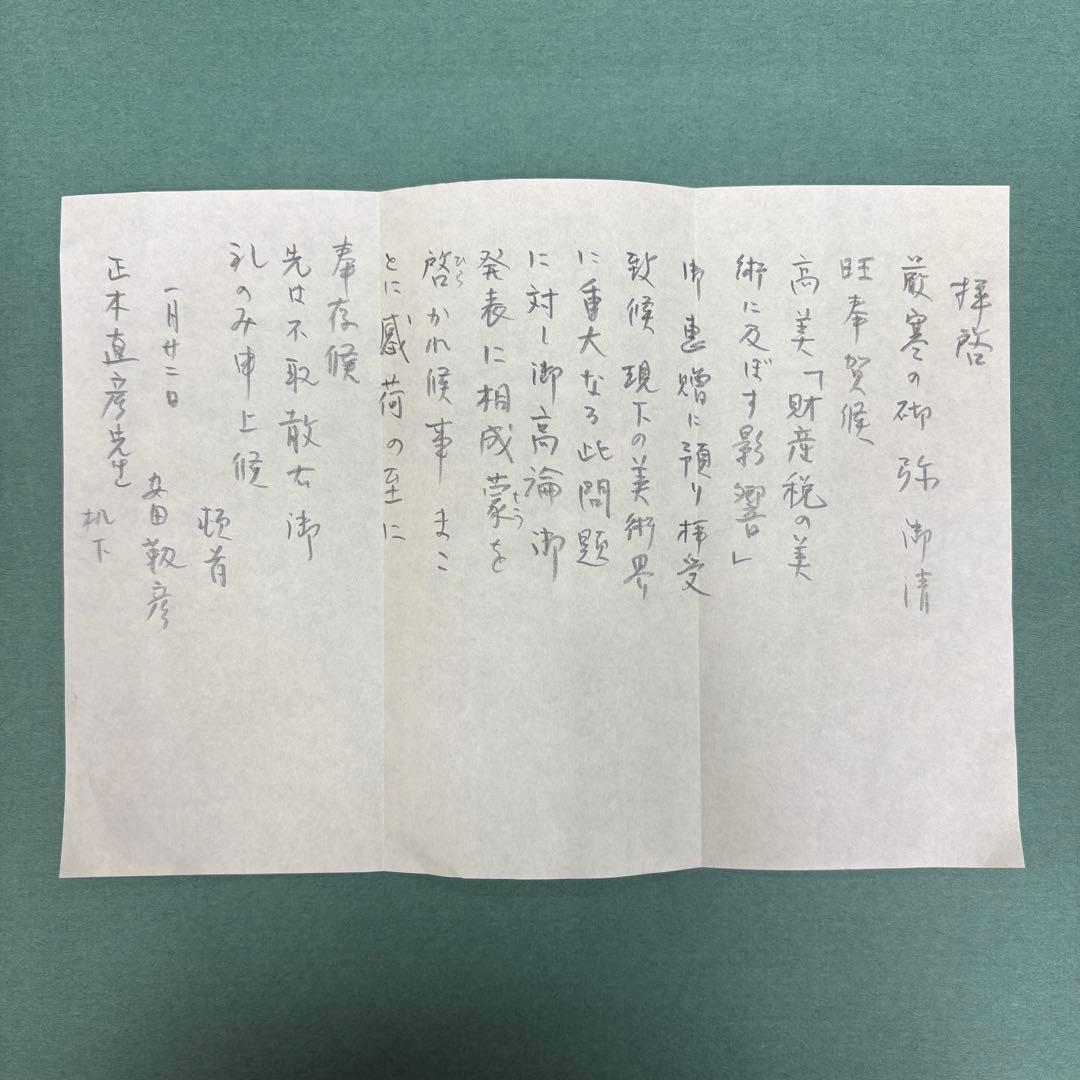 拝啓
厳寒の砌 弥 御清
旺奉賀候
高美「財産税の美
術に及ぼす影響」
御恵贈に預り拝受
致候 現下の美術界
に重大なる此問題
に対し御高論御
発表に相成蒙をもう
啓かれ候事 まこひら
とに感荷の至に
奉存候
先は不取敢右御
礼のみ申上候
頓首
一月廿二日
安田靫彦
正木直彦先生
机下